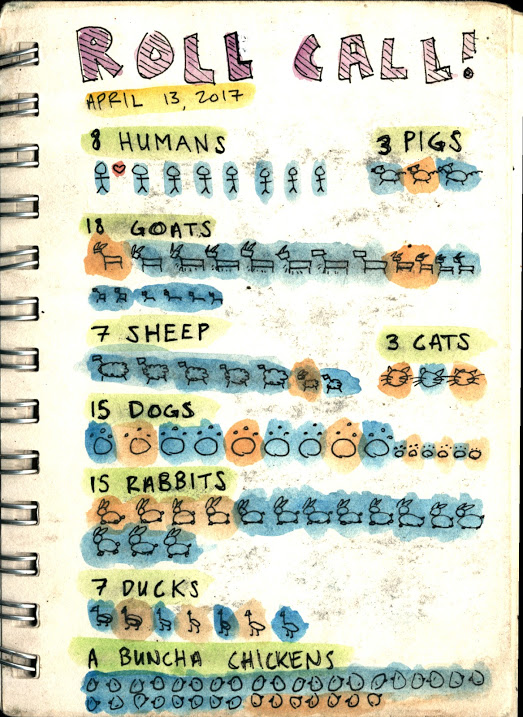 ROLL CALL!
APRIL 13, 2017
8 HUMANS
3 PIGS
18 GOATS
7 SHEEP
3 CATS
15 DOGS
15 RABBITS
7 DUCKS
A BUNCHA CHICKENS